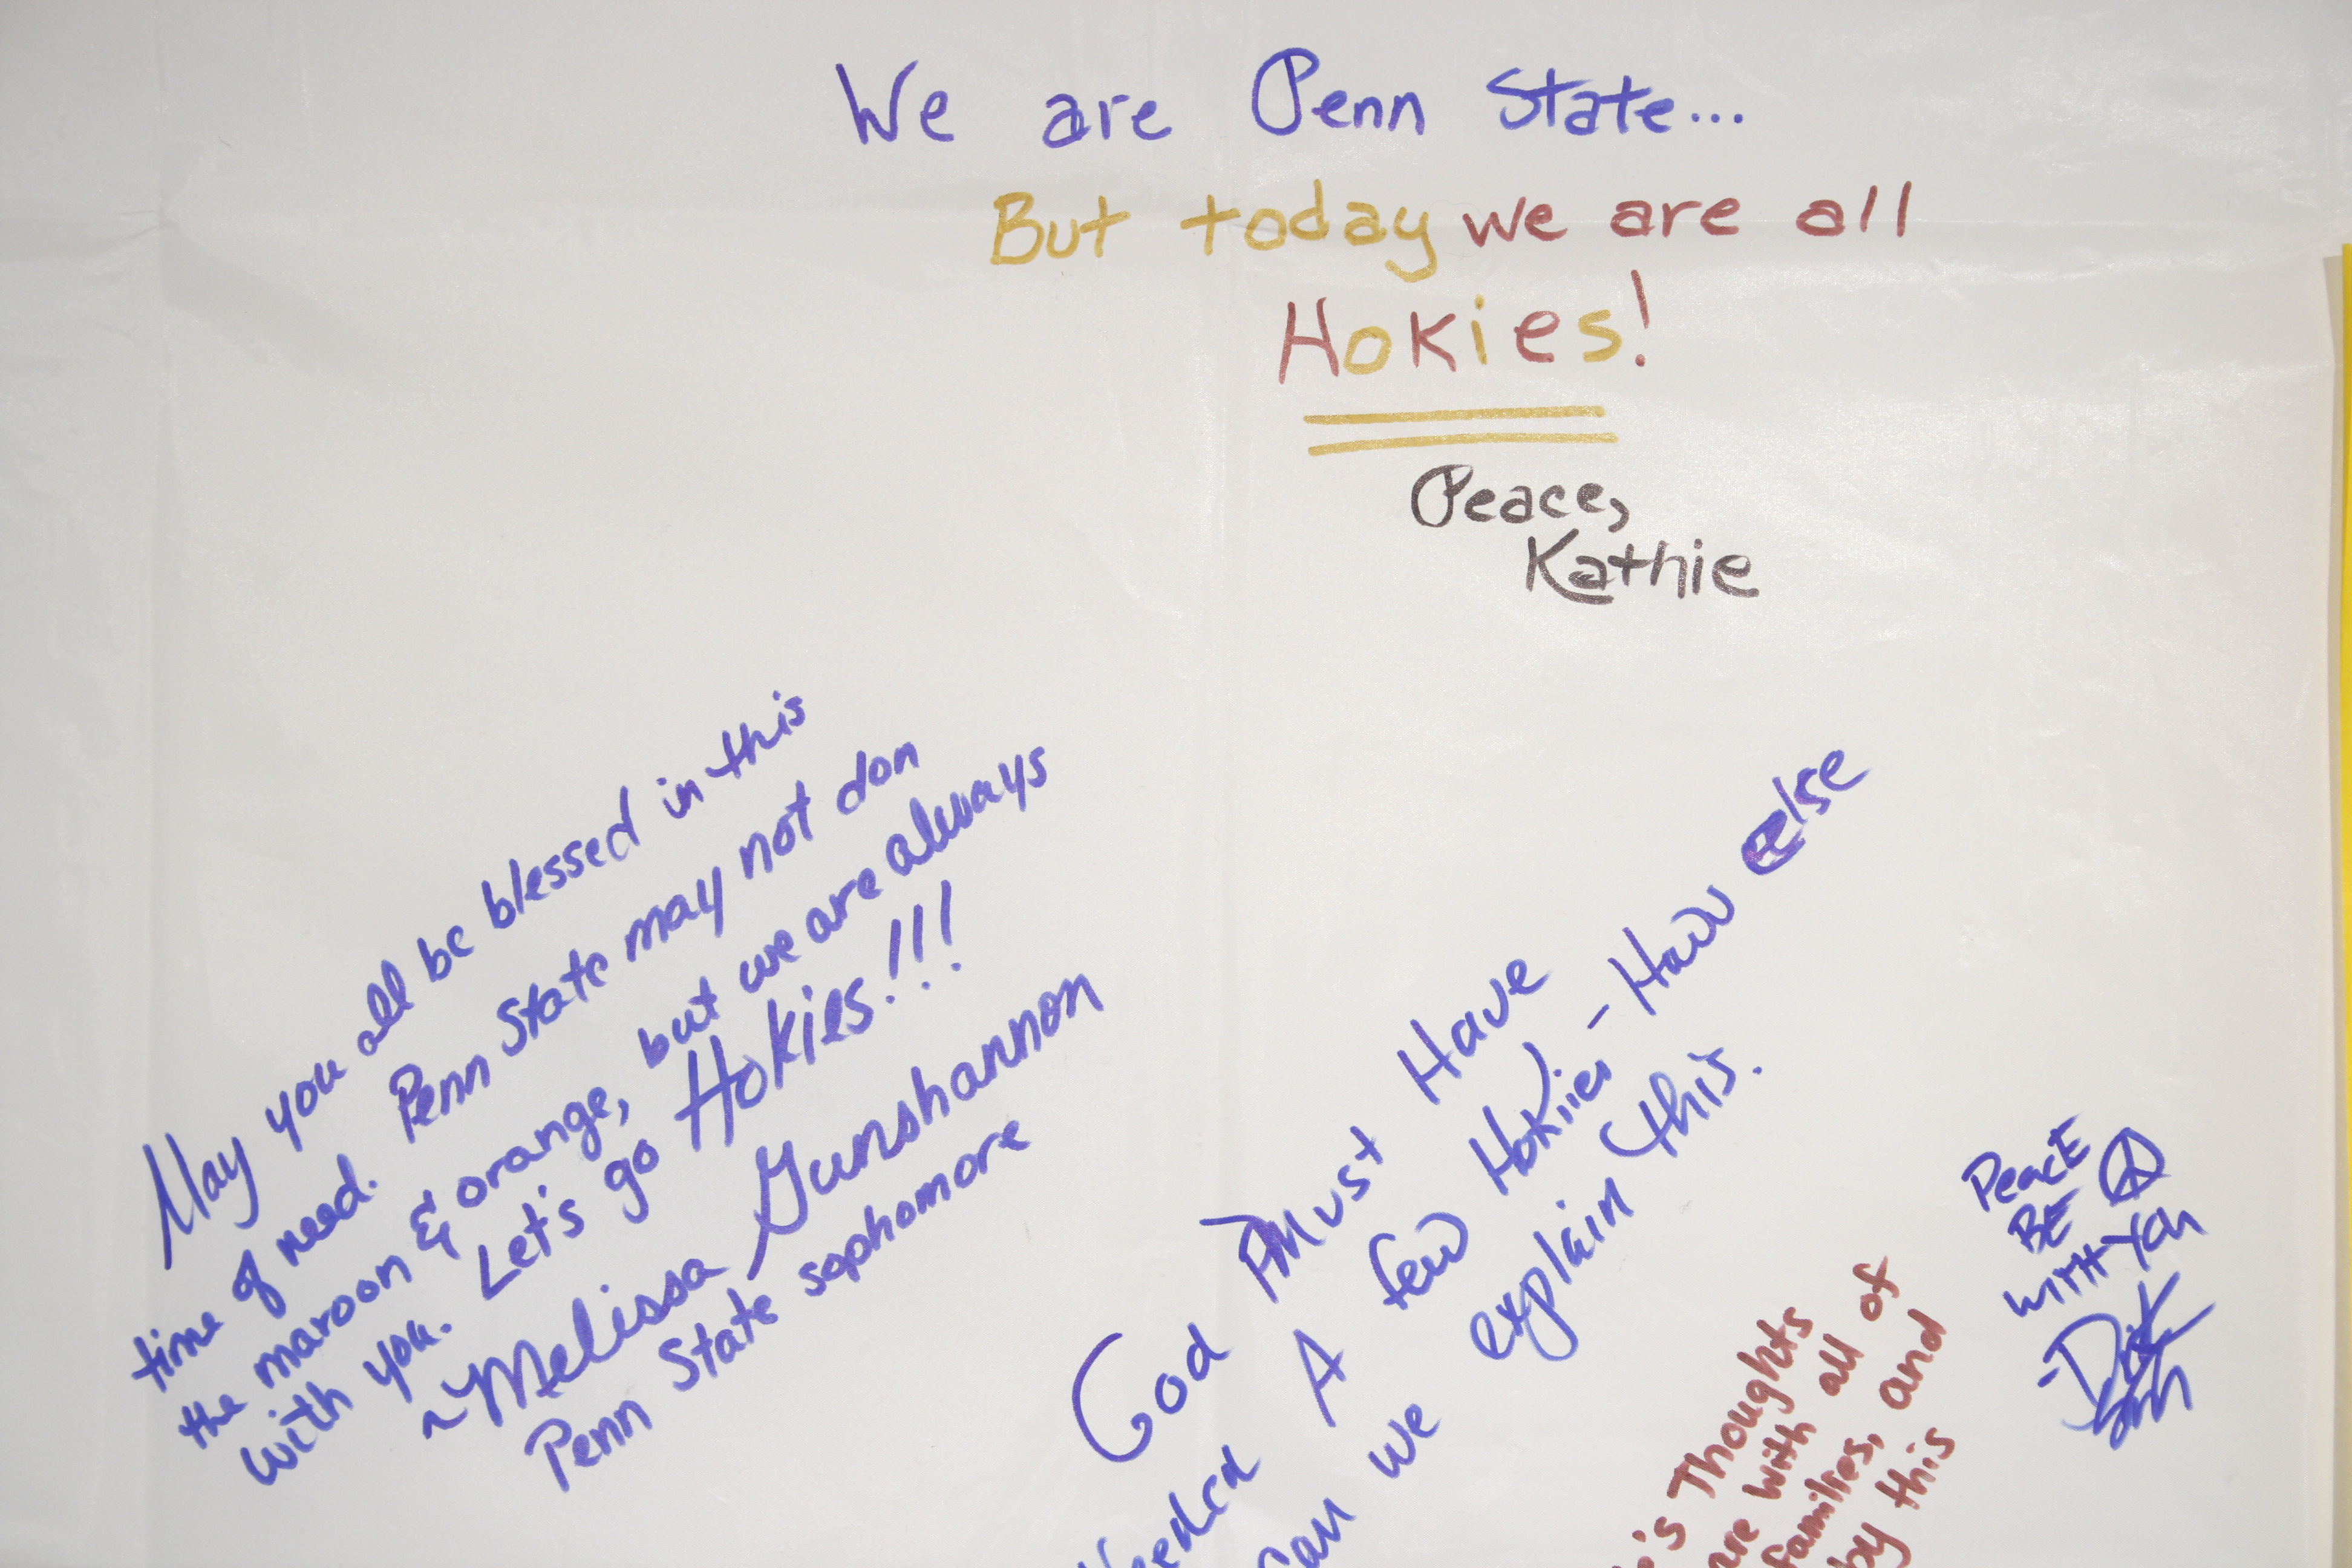 We are Penn State...
But today we are all
Hokies!
Peace,
Kathie
May you all be blessed in this
time of need. Penn State may not don
the maroon & orange, but we are always
with you. Let's go Hokies!!!
~Melissa Gunshannon
Penn State sophomore
God Must Have
Needed A few Hokies - How else
Can we explain this.
Peace
BE
WITH You
's Thoughts
are with all of
families, and
by this